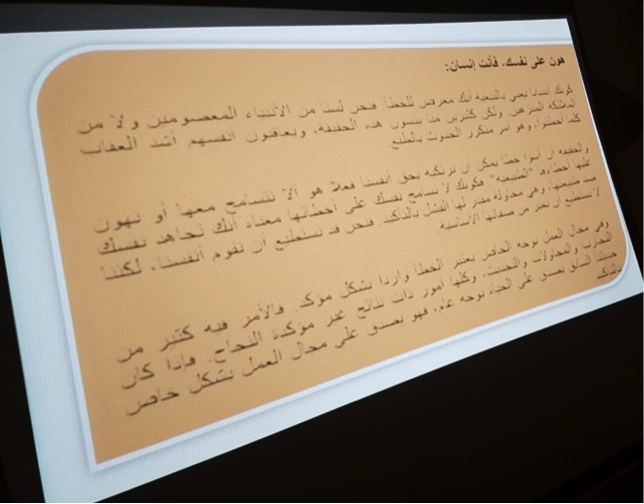 هون على نفسك، فأنت إنسان:
كونك إنسانا يعني بالتبعية أنك معرض للخطأ. فنحن لسنا من الأنبياء المعصومين ولا من
الملائكة المنزهين. ولكن كثيرين منا ينسون هذه الحقيقة، ويعاقبون أنفسهم أشد العقاب
كلما أخطئوا، وهو أمر متكرر الحدوث بالطبع.
والحقيقة أن أسوأ خطأ يمكن أن نرتكبه بحق أنفسنا فعلا هو ألا نتسامح معها أو نهون
عليها أخطاءها "الطبيعية". فكونك لا تسامح نفسك على أخطائها معناه أنك تجاهد نفسك
ضد طبيعتها، وهي محاولة مقدر لها الفشل بالتأكيد. فنحن قد نستطيع أن نقوم أنفسنا، لكننا
لا نستطيع أن نغير من صفاتها الأساسية.
وفي مجال العمل بوجه الخاص يعتبر الخطأ واردا بشكل مؤكد. فالأمر فيه كثير من
التجارب والمحاولات والتحديات، وكلها أمور ذات نتائج غير مؤكدة النجاح. فإذا كان
حديثنا السابق يصدق على الحياة بوجه عام، فهو يصدق على مجال العمل بشكل خاص
بالتأكيد.